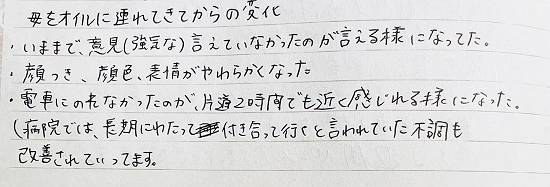 母をオイルに連れてきてからの変化
・いままで、意見(強気な)言えていなかったのが言える様になってた。
・顔つき、顔色、表情がやわらかくなった
・電車にのれなかったのが、片道2時間でも近く感じれる様になった。
(病院では、長期にわたって付き合って行くと言われていた不調も
改善されていってます。